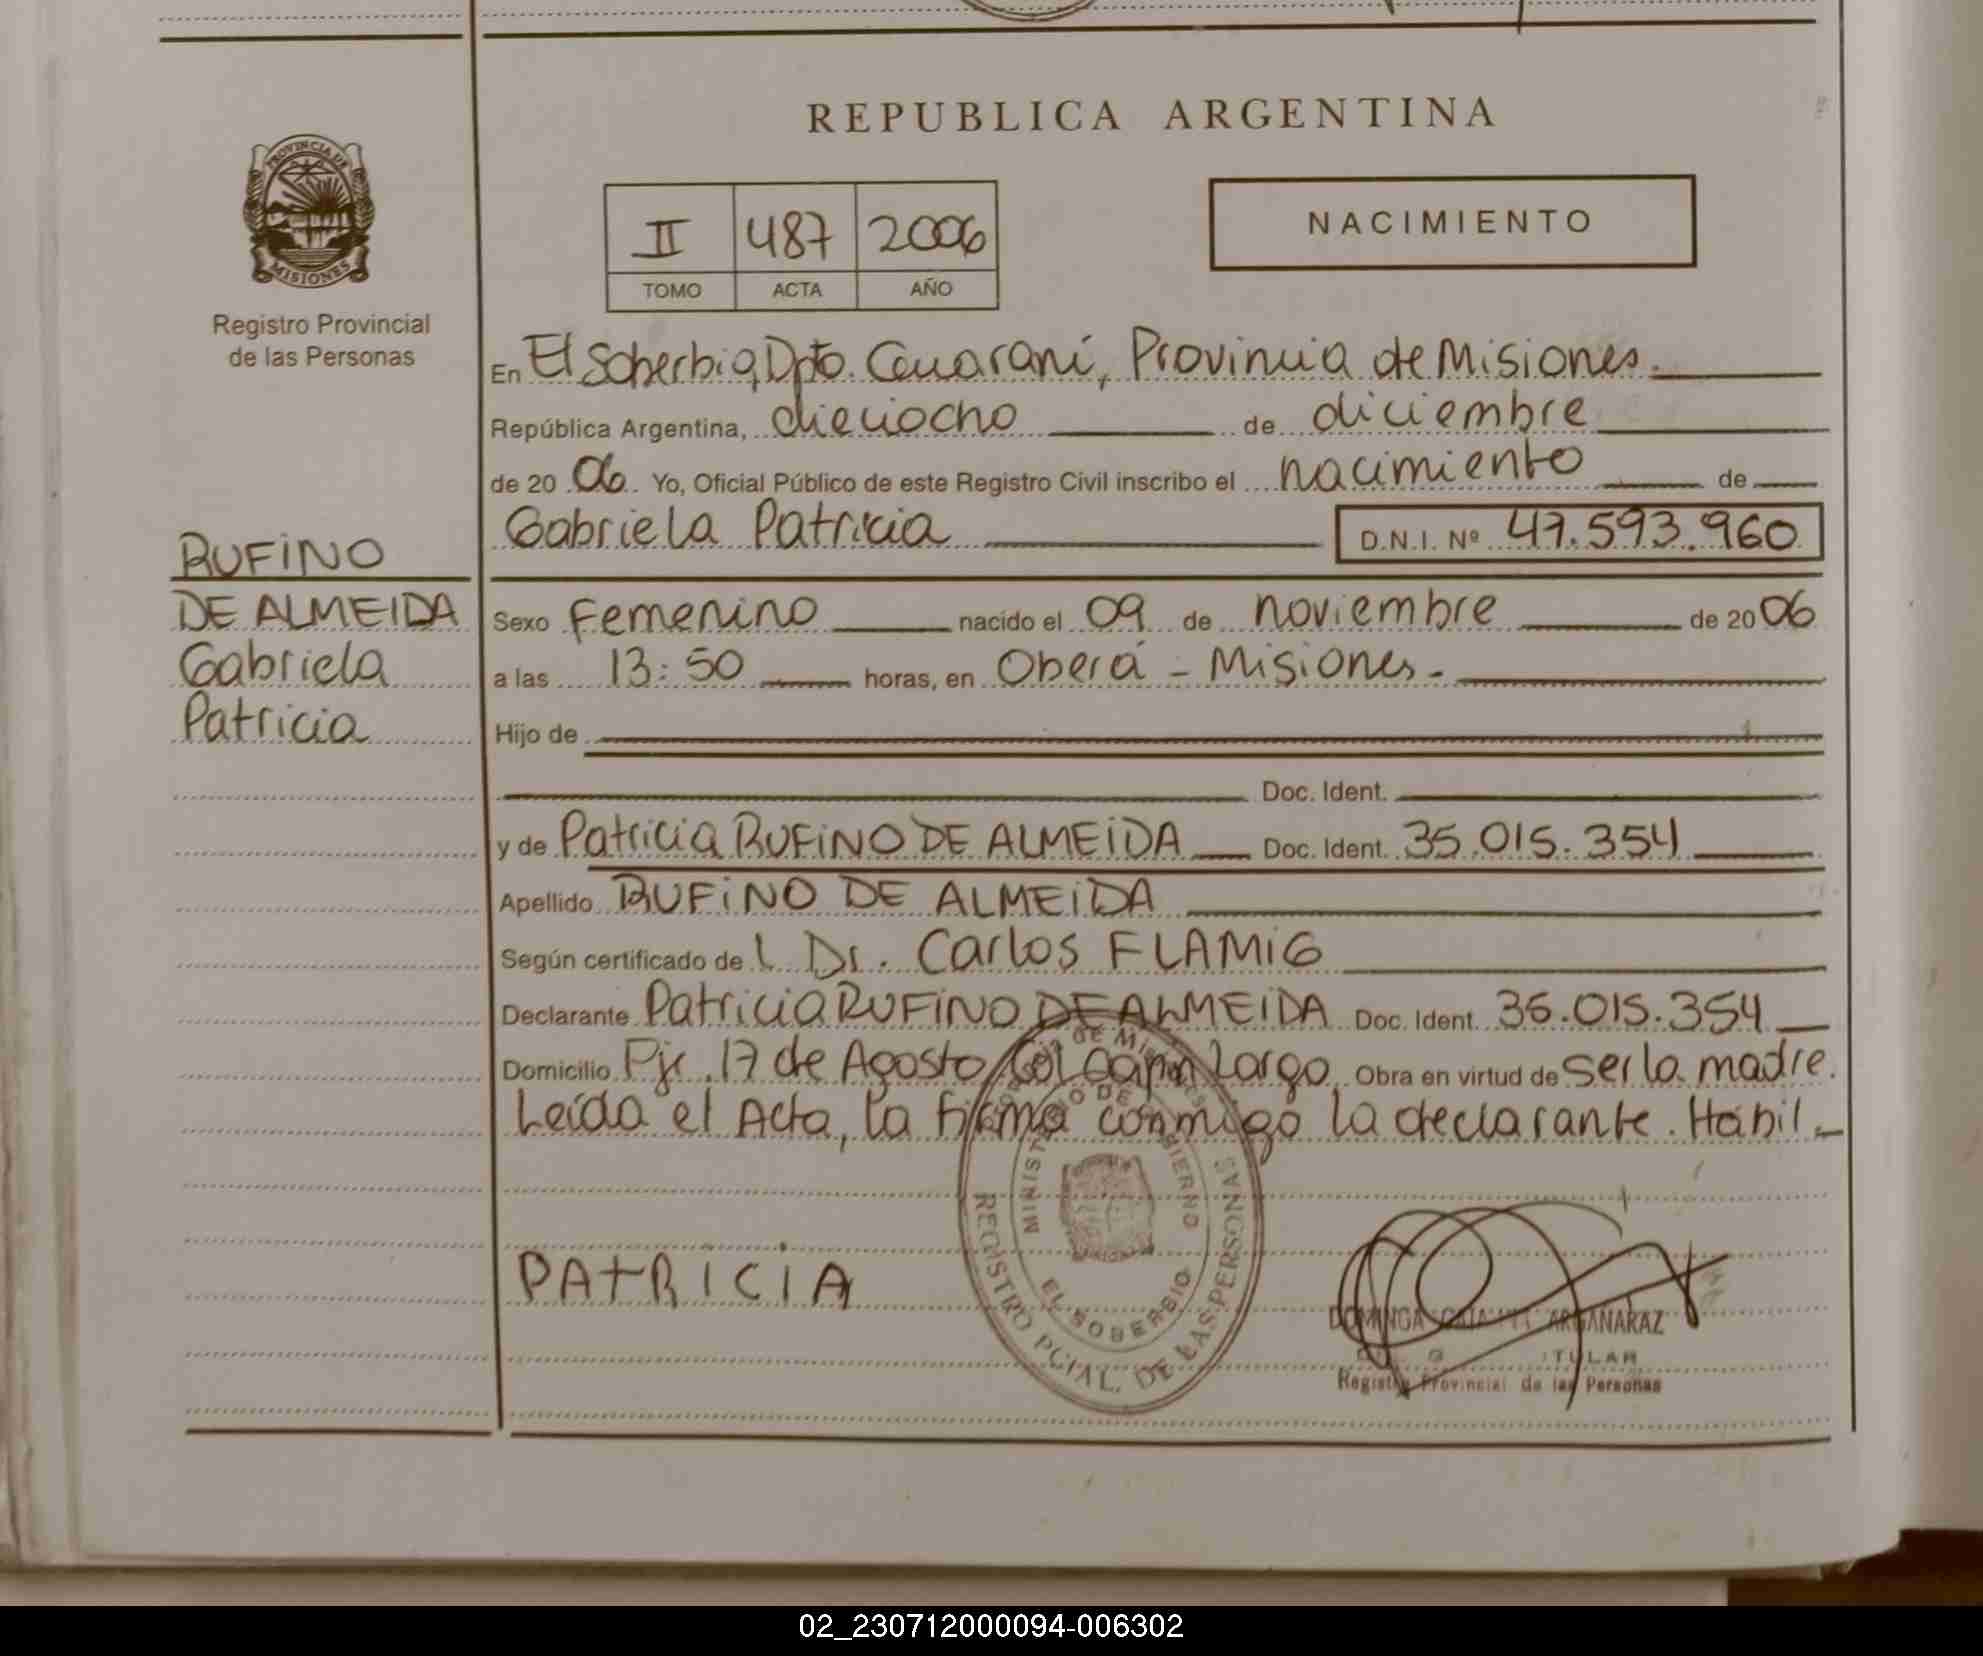 REPUBLICA ARGENTINA
PROVINCIA DE
MISIONES
Registro Provincial
de las Personas
II 487 2006
TOMO ACTA AÑO
NACIMIENTO
En El Soberbio, Dpto. Guaraní, Provincia de Misiones.
República Argentina, dieciocho de diciembre
de 20 06 Yo, Oficial Público de este Registro Civil inscribo el nacimiento de
Gabriela Patricia D.N.I. Nº 47.593.960
RUFINO
DE ALMEIDA
Gabriela
Patricia
Sexo Femenino nacido el 09 de noviembre de 20 06
a las 13:50 horas, en Oberá - Misiones.
Hijo de
Doc. Ident.
y de Patricia RUFINO DE ALMEIDA Doc. Ident. 35.015.354
Apellido RUFINO DE ALMEIDA
Según certificado de l Dr. Carlos FLAMIG
Declarante Patricia RUFINO DE ALMEIDA Doc. Ident. 35.015.354
Domicilio Pje. 17 de Agosto Largo Obra en virtud de ser la madre.
Leída el Acta, la firma conmigo la declarante. Hábil.
PATRICIA
MINISTERIO DE GOBIERNO
EL SOBERBIO
REGISTRO PCIAL. DE LAS PERSONAS
DOMINGA ARGAÑARAZ
TITULAR
Registro Provincial de las Personas
02_230712000094-006302